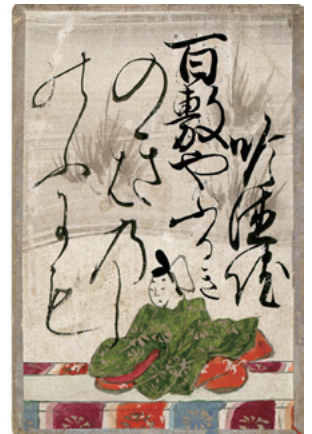 順徳院
百敷やふるき
のきは乃し
のふにも